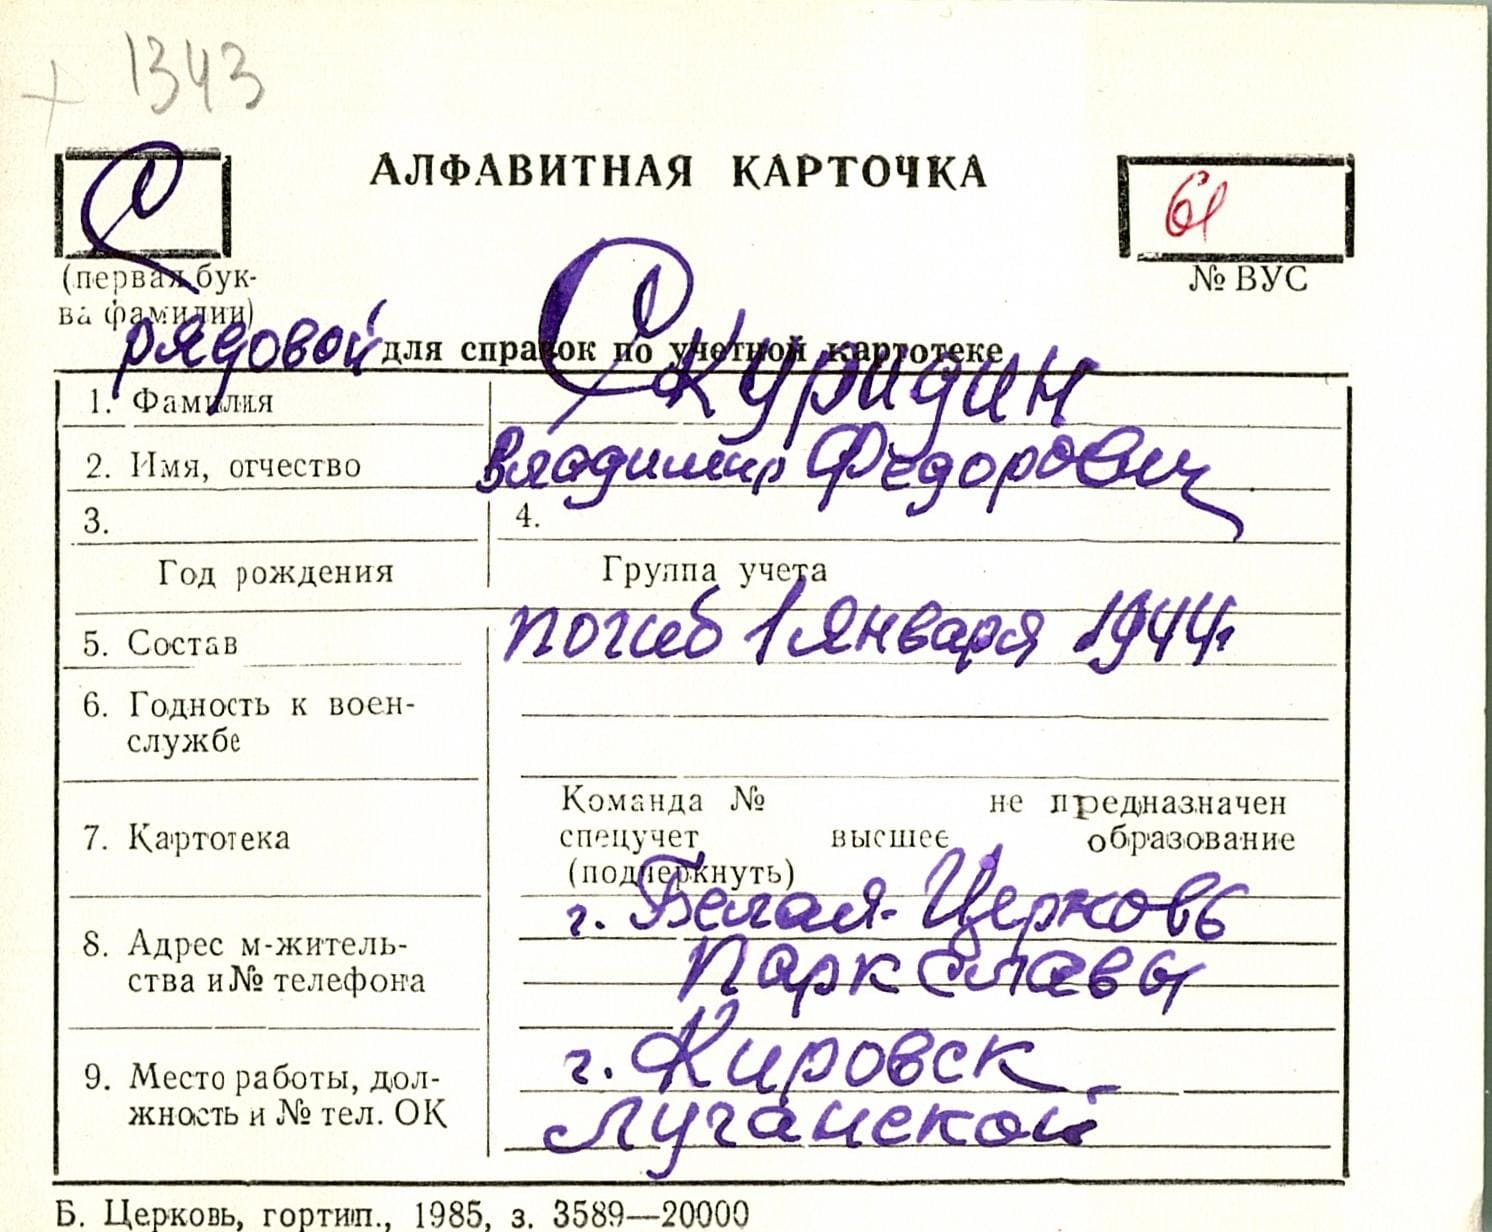 1343
С
АЛФАВИТНАЯ КАРТОЧКА
61
(первая бук-
ва фамилии)
№ ВУС
рядовой
для справок по учетной картотеке
1. Фамилия Скуридин
2. Имя, отчество Владимир Федорович
3. 4.
Год рождения Группа учета
5. Состав погиб 1 января 1944г
6. Годность к воен-
службе
Команда № не предназначен
7. Картотека спецучет высшее образование
(подчеркнуть)
г. Белая-Церковь
8. Адрес м-житель-
ства и № телефона Парк Славы
г. Кировск
9. Место работы, дол-
жность и № тел. ОК Луганской
Б. Церковь, гортип., 1985, з. 3589—20000